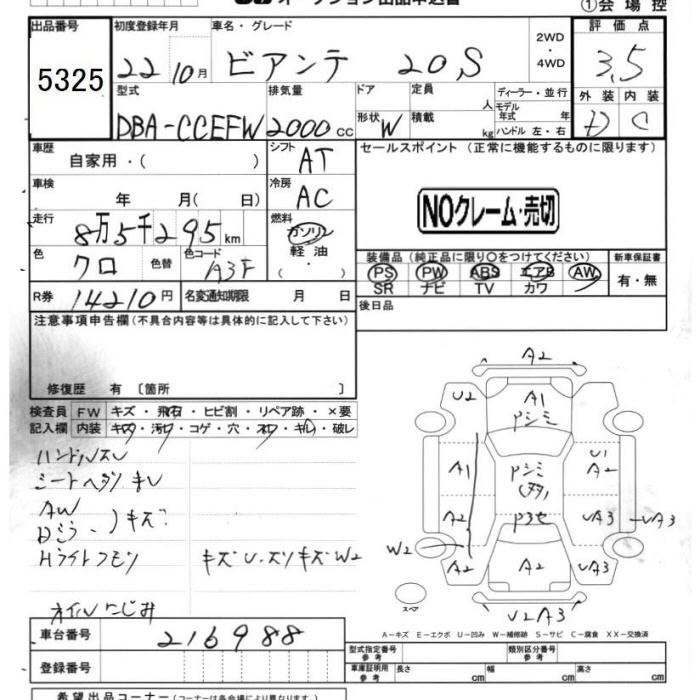 オークション出品申込書
①会場控
出品番号
5325
初度登録年月
22 10月
車名・グレード
ビアンテ 20,S
2WD
・
4WD
評価点
3,5
型式
DBA-CCEFW
排気量
2000cc
ドア
形状 W
定員 人
積載 kg
ディーラー・並行
モデル
年式 年
ハンドル 左・右
外装 内装
D C
車歴
自家用・( )
シフト
AT
セールスポイント（正常に機能するものに限ります）
車検
年 月( 日)
冷房
AC
NOクレーム・売切
走行
8万5千295km
燃料
ガソリン
軽油
・
色
クロ
色替
カラーコード
A3F
装備品（純正品に限り○をつけてください）
新車保証書
PS PW ABS エアB AW
SR ナビ TV カワ
有・無
R券
14210円
名変通知期限 月 日
後日品
注意事項申告欄（不具合内容等は具体的に記入して下さい）
修復歴 有〔箇所 〕
検査員 FW キズ・飛石・ヒビ割・リペア跡・×要
記入欄 内装 キズ・汚レ・コゲ・穴・スレ・キレ・破レ
ハンドルスレ
シートヘタリ キレ
AW
Dミラー )キズ
Hライトクモリ キズU.スリキズW2
オイルにじみ
A2
U2 A1
Pシミ
A1 Pシミ U1
A2
A2 Pヨセ UA3 UA3
W2
A2 A2 UA3
スペア
U2A3
A－キズ E－エクボ U－凹み W－補修跡 S－サビ C－腐食 XX－交換済
車台番号
216988
登録番号
型式指定番号
参考
類別区分番号
参考
車庫証明用
参考
長さ cm 幅 cm 高さ cm
希望出品コーナー（コーナーは各会場により異なります）